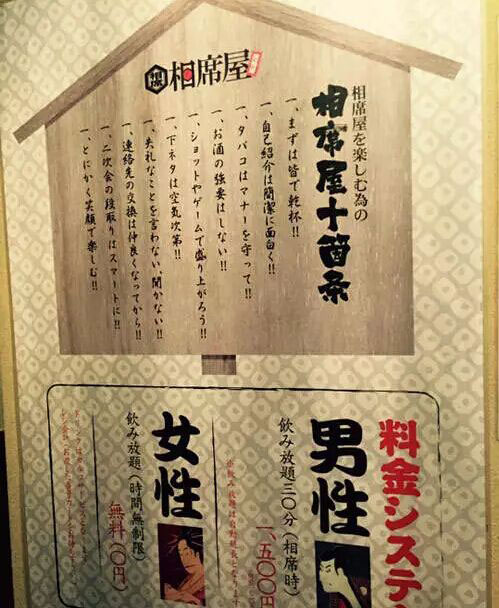 相席屋
相席屋を楽しむ為の
相席屋十箇条
一、まずは皆で乾杯!!
一、自己紹介は簡潔に面白く!!
一、タバコはマナーを守って!!
一、お酒の強要はしない!!
一、ショットやゲームで盛り上がろう!!
一、下ネタは空気次第!!
一、失礼なことを言わない、聞かない!!
一、連絡先の交換は仲良くなってから!!
一、二次会の段取りはスマートに!!
一、とにかく笑顔で楽しむ!!
料金システ
男性
飲み放題三〇分(相席時)
一、五〇〇円
女性
飲み放題(時間無制限)
無料(〇円)